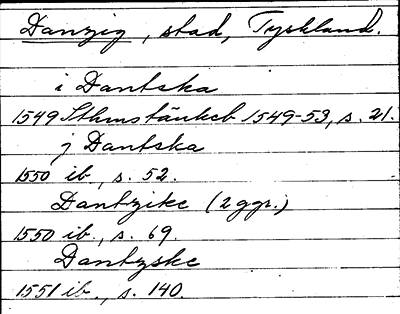 Danzig, stad, Tyskland.
i Dantska
1549 Sthmstänkeb 1549-53, s. 21.
j Dantska
1550 ib., s. 52.
Dantzike (2 ggr.)
1550 ib., s. 69.
Dantzske
1551 ib., s. 140.